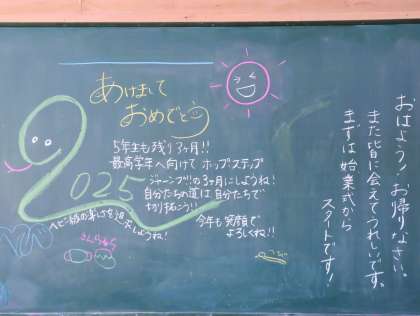 あけまして
おめでとう
5年生も残り3ヶ月!!
最高学年へ向けて ホップステップ
ジャーンプ!!!の3ヶ月にしようね!
自分たちの道は自分たちで
切り拓こう!!
2025
今年も笑顔で
よろしくね!!
おはよう!お帰りなさい。
また皆に会えてうれしいです。
まずは始業式から
スタートです!